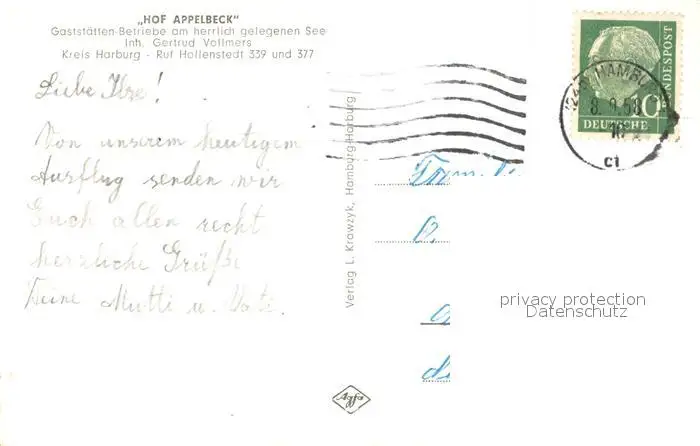 „HOF APPELBECK"
Gaststätten-Betriebe am herrlich gelegenen See
Inh. Gertrud Vollmers
Kreis Harburg - Ruf Hollenstedt 339 und 377
Liebe Ilse!
Von unserem heutigem
Ausflug senden wir
Euch allen recht
herzliche Grüße
Deine Mutti u. Vati.
Verlag L. Krawzyk, Hamburg-Harburg
Agfa
HAMBU
8.9.58
ci
10
DEUTSCHE
BUNDESPOST
privacy protection
Datenschutz